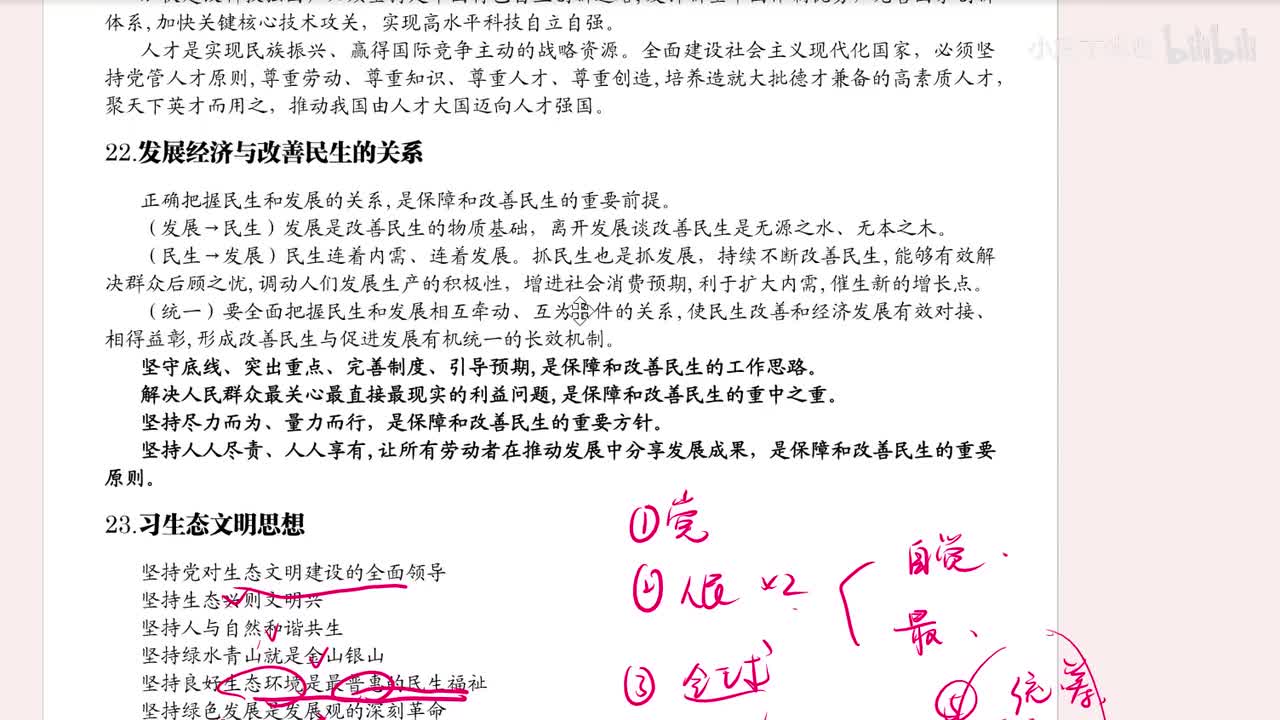 体系,加快关键核心技术攻关，实现高水平科技自立自强。
人才是实现民族振兴、赢得国际竞争主动的战略资源。全面建设社会主义现代化国家，必须坚
持党管人才原则,尊重劳动、尊重知识、尊重人才、尊重创造,培养造就大批德才兼备的高素质人才,
聚天下英才而用之，推动我国由人才大国迈向人才强国。
bilibili
22.发展经济与改善民生的关系
正确把握民生和发展的关系,是保障和改善民生的重要前提。
（发展→民生）发展是改善民生的物质基础，离开发展谈改善民生是无源之水、无本之木。
（民生→发展）民生连着内需、连着发展。抓民生也是抓发展，持续不断改善民生,能够有效解
决群众后顾之忧,调动人们发展生产的积极性，增进社会消费预期,利于扩大内需,催生新的增长点。
（统一）要全面把握民生和发展相互牵动、互为条件的关系,使民生改善和经济发展有效对接、
相得益彰,形成改善民生与促进发展有机统一的长效机制。
坚守底线、突出重点、完善制度、引导预期,是保障和改善民生的工作思路。
解决人民群众最关心最直接最现实的利益问题,是保障和改善民生的重中之重。
坚持尽力而为、量力而行，是保障和改善民生的重要方针。
坚持人人尽责、人人享有,让所有劳动者在推动发展中分享发展成果，是保障和改善民生的重要
原则。
23.习生态文明思想
坚持党对生态文明建设的全面领导
坚持生态兴则文明兴
坚持人与自然和谐共生
坚持绿水青山就是金山银山
坚持良好生态环境是最普惠的民生福祉
坚持绿色发展是发展观的深刻革命
①党
②人民 x2
自觉
最
③全球
⑤统筹